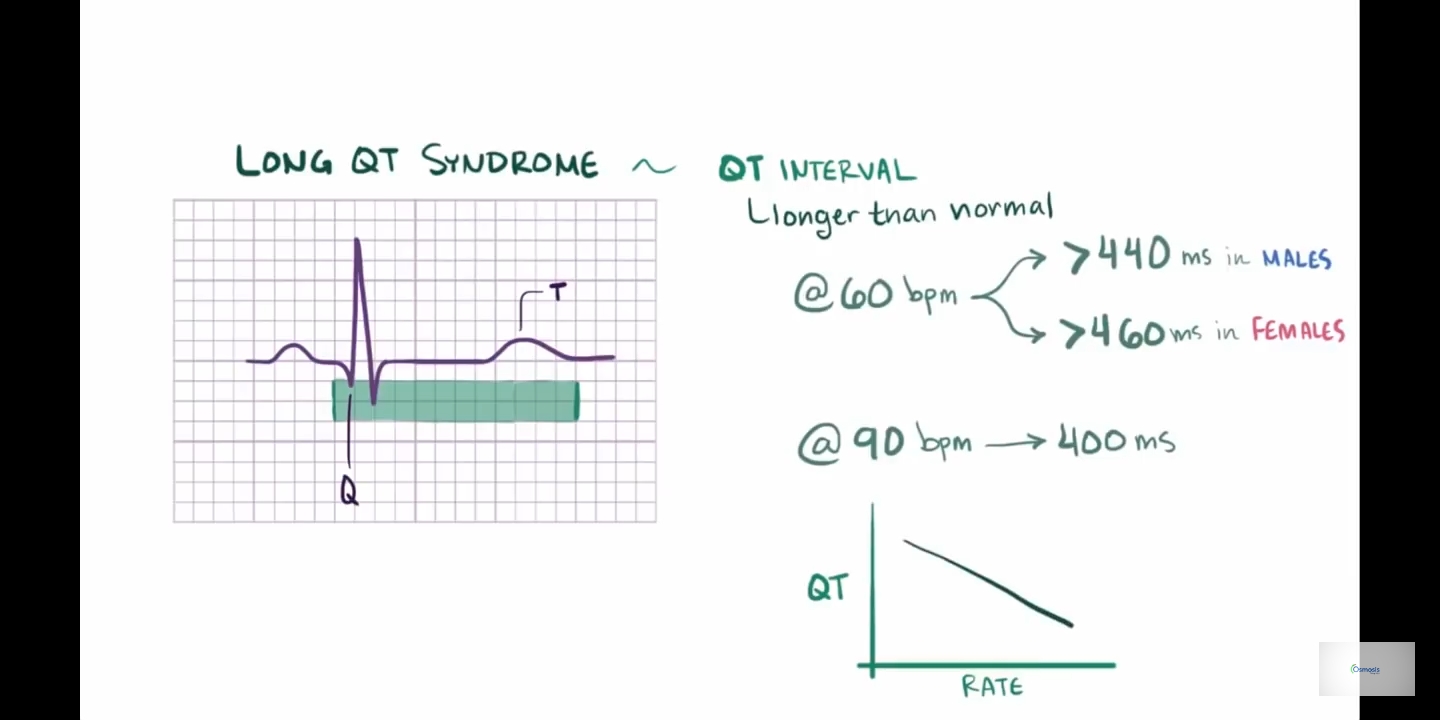 LONG QT SYNDROME ~ QT INTERVAL
longer than normal
@ 60 bpm
>440 ms in MALES
>460 ms in FEMALES
T
Q
@ 90 bpm → 400 ms
QT
RATE
Osmosis